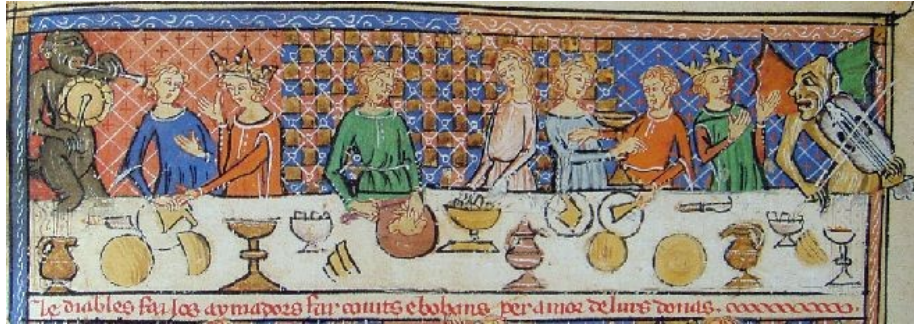 Le diables fa als aymadors far covits e bobans per amor de lurs donas.